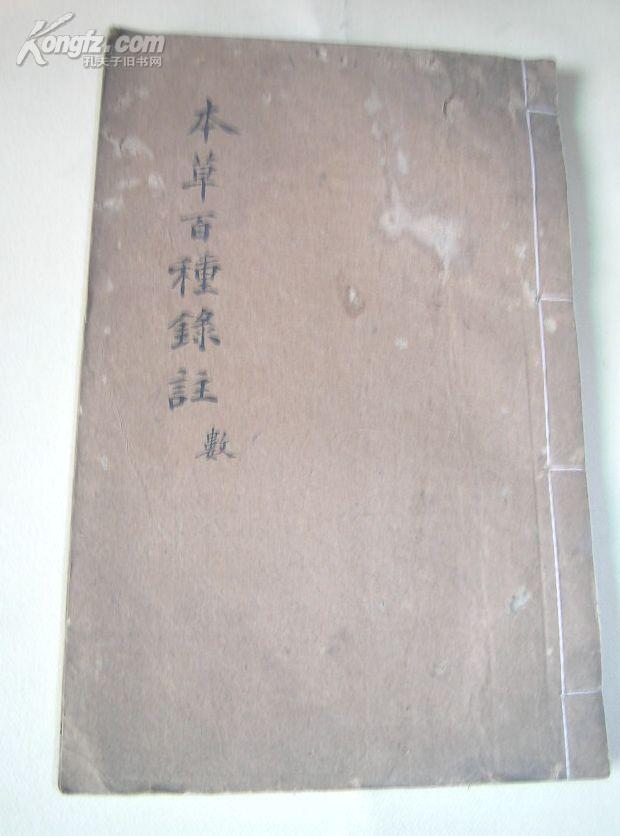 Kongfz.com
孔夫子旧书网
本草百種錄註
數